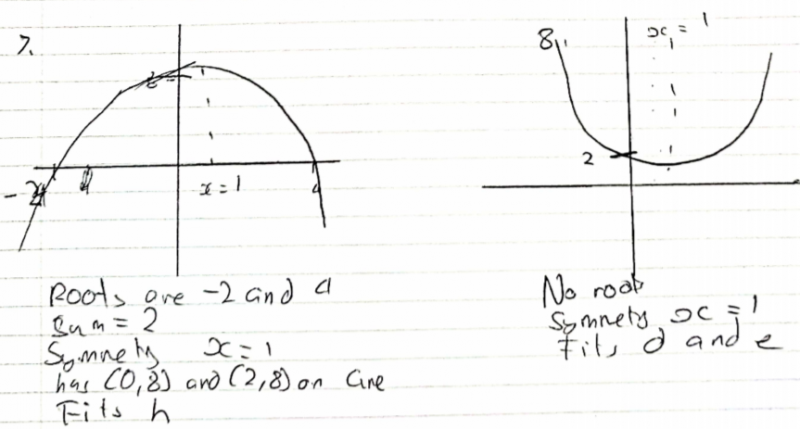 7.
-2
x = 1
4
Roots are -2 and 4
Sum = 2
Symmety x = 1
has (0,8) and (2,8) on line
Fits h
8.
x = 1
2
No roots
Symmety x = 1
Fits d and e